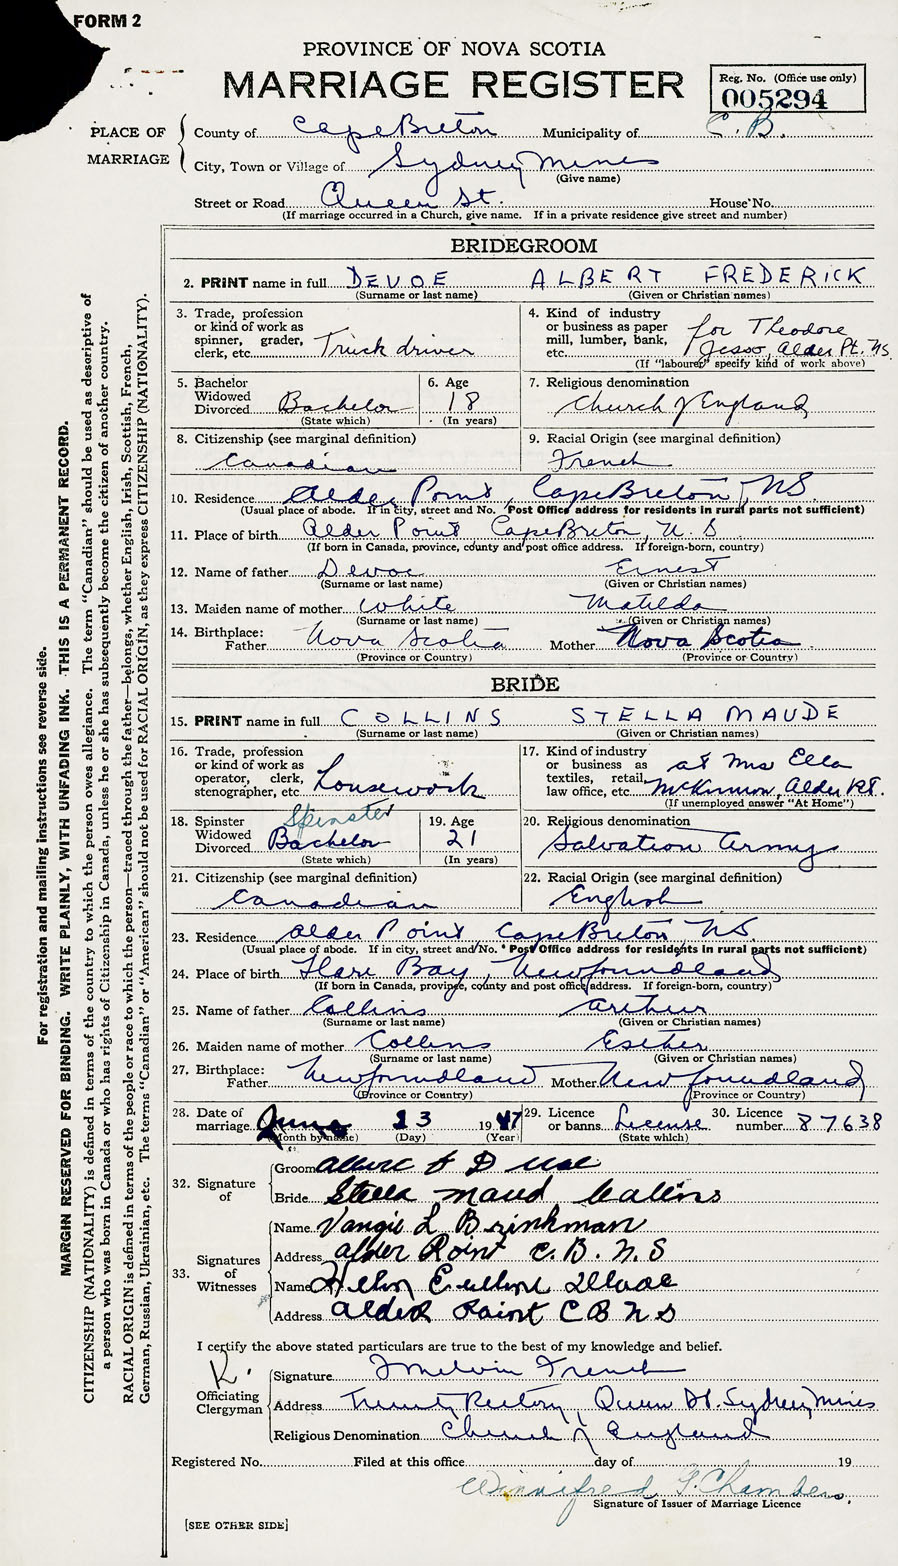 FORM 2
PROVINCE OF NOVA SCOTIA
MARRIAGE REGISTER
Reg. No. (Office use only)
005294
PLACE OF MARRIAGE
County of Cape Breton Municipality of C. B.
City, Town or Village of Sydney Mines
(Give name)
Street or Road Queen St. House No.
(If marriage occurred in a Church, give name. If in a private residence give street and number)
BRIDEGROOM
2. PRINT name in full DEVOE ALBERT FREDERICK
(Surname or last name) (Given or Christian names)
3. Trade, profession or kind of work as spinner, grader, clerk, etc. Truck driver
4. Kind of industry or business as paper mill, lumber, bank, etc. for Theodore Jesso, Alder Pt. NS
(If "labourer" specify kind of work above)
5. Bachelor Widowed Divorced Bachelor
(State which)
6. Age 18
(In years)
7. Religious denomination Church of England
8. Citizenship (see marginal definition) Canadian
9. Racial Origin (see marginal definition) French
10. Residence Alder Point, Cape Breton, NS.
(Usual place of abode. If in city, street and No. Post Office address for residents in rural parts not sufficient)
11. Place of birth Alder Point Cape Breton, N. S.
(If born in Canada, province, county and post office address. If foreign-born, country)
12. Name of father Devoe Ernest
(Surname or last name) (Given or Christian names)
13. Maiden name of mother White Matilda
(Surname or last name) (Given or Christian names)
14. Birthplace: Father Nova Scotia Mother Nova Scotia
(Province or Country) (Province or Country)
BRIDE
15. PRINT name in full COLLINS STELLA MAUDE
(Surname or last name) (Given or Christian names)
16. Trade, profession or kind of work as operator, clerk, stenographer, etc. Housework
17. Kind of industry or business as textiles, retail, law office, etc. at Mrs Ella McKinnon, Alder Pt.
(If unemployed answer "At Home")
18. Spinster Widowed Divorced Spinster Bachelor
(State which)
19. Age 21
(In years)
20. Religious denomination Salvation Army
21. Citizenship (see marginal definition) Canadian
22. Racial Origin (see marginal definition) English
23. Residence Alder Point Cape Breton NS.
(Usual place of abode. If in city, street and No. Post Office address for residents in rural parts not sufficient)
24. Place of birth Hare Bay, Newfoundland
(If born in Canada, province, county and post office address. If foreign-born, country)
25. Name of father Collins Arthur
(Surname or last name) (Given or Christian names)
26. Maiden name of mother Collins Esther
(Surname or last name) (Given or Christian names)
27. Birthplace: Father Newfoundland Mother Newfoundland
(Province or Country) (Province or Country)
28. Date of marriage June 23 1947
(Month by name) (Day) (Year)
29. Licence or banns License
(State which)
30. Licence number 87638
32. Signature of
Groom
Bride Stella Maud Collins
33. Signatures of Witnesses
Name Vangie L Brinkman
Address Alder Point C. B. N. S
Name
Address Alder Point C B N S
I certify the above stated particulars are true to the best of my knowledge and belief.
Officiating Clergyman
Signature Melvin French
Address Trinity Rectory, Queen St. Sydney Mines
Religious Denomination Church of England
Registered No. Filed at this office day of 19
Winnifred F. Chambers.
Signature of Issuer of Marriage Licence
[SEE OTHER SIDE]
For registration and mailing instructions see reverse side.
MARGIN RESERVED FOR BINDING. WRITE PLAINLY, WITH UNFADING INK. THIS IS A PERMANENT RECORD.
CITIZENSHIP (NATIONALITY) is defined in terms of the country to which the person owes allegiance. The term "Canadian" should be used as descriptive of
a person who was born in Canada or who has rights of Citizenship in Canada, unless he or she has subsequently become the citizen of another country.
RACIAL ORIGIN is defined in terms of the people or race to which the person—traced through the father—belongs, whether English, Irish, Scottish, French,
German, Russian, Ukrainian, etc. The terms "Canadian" or "American" should not be used for RACIAL ORIGIN, as they express CITIZENSHIP (NATIONALITY).